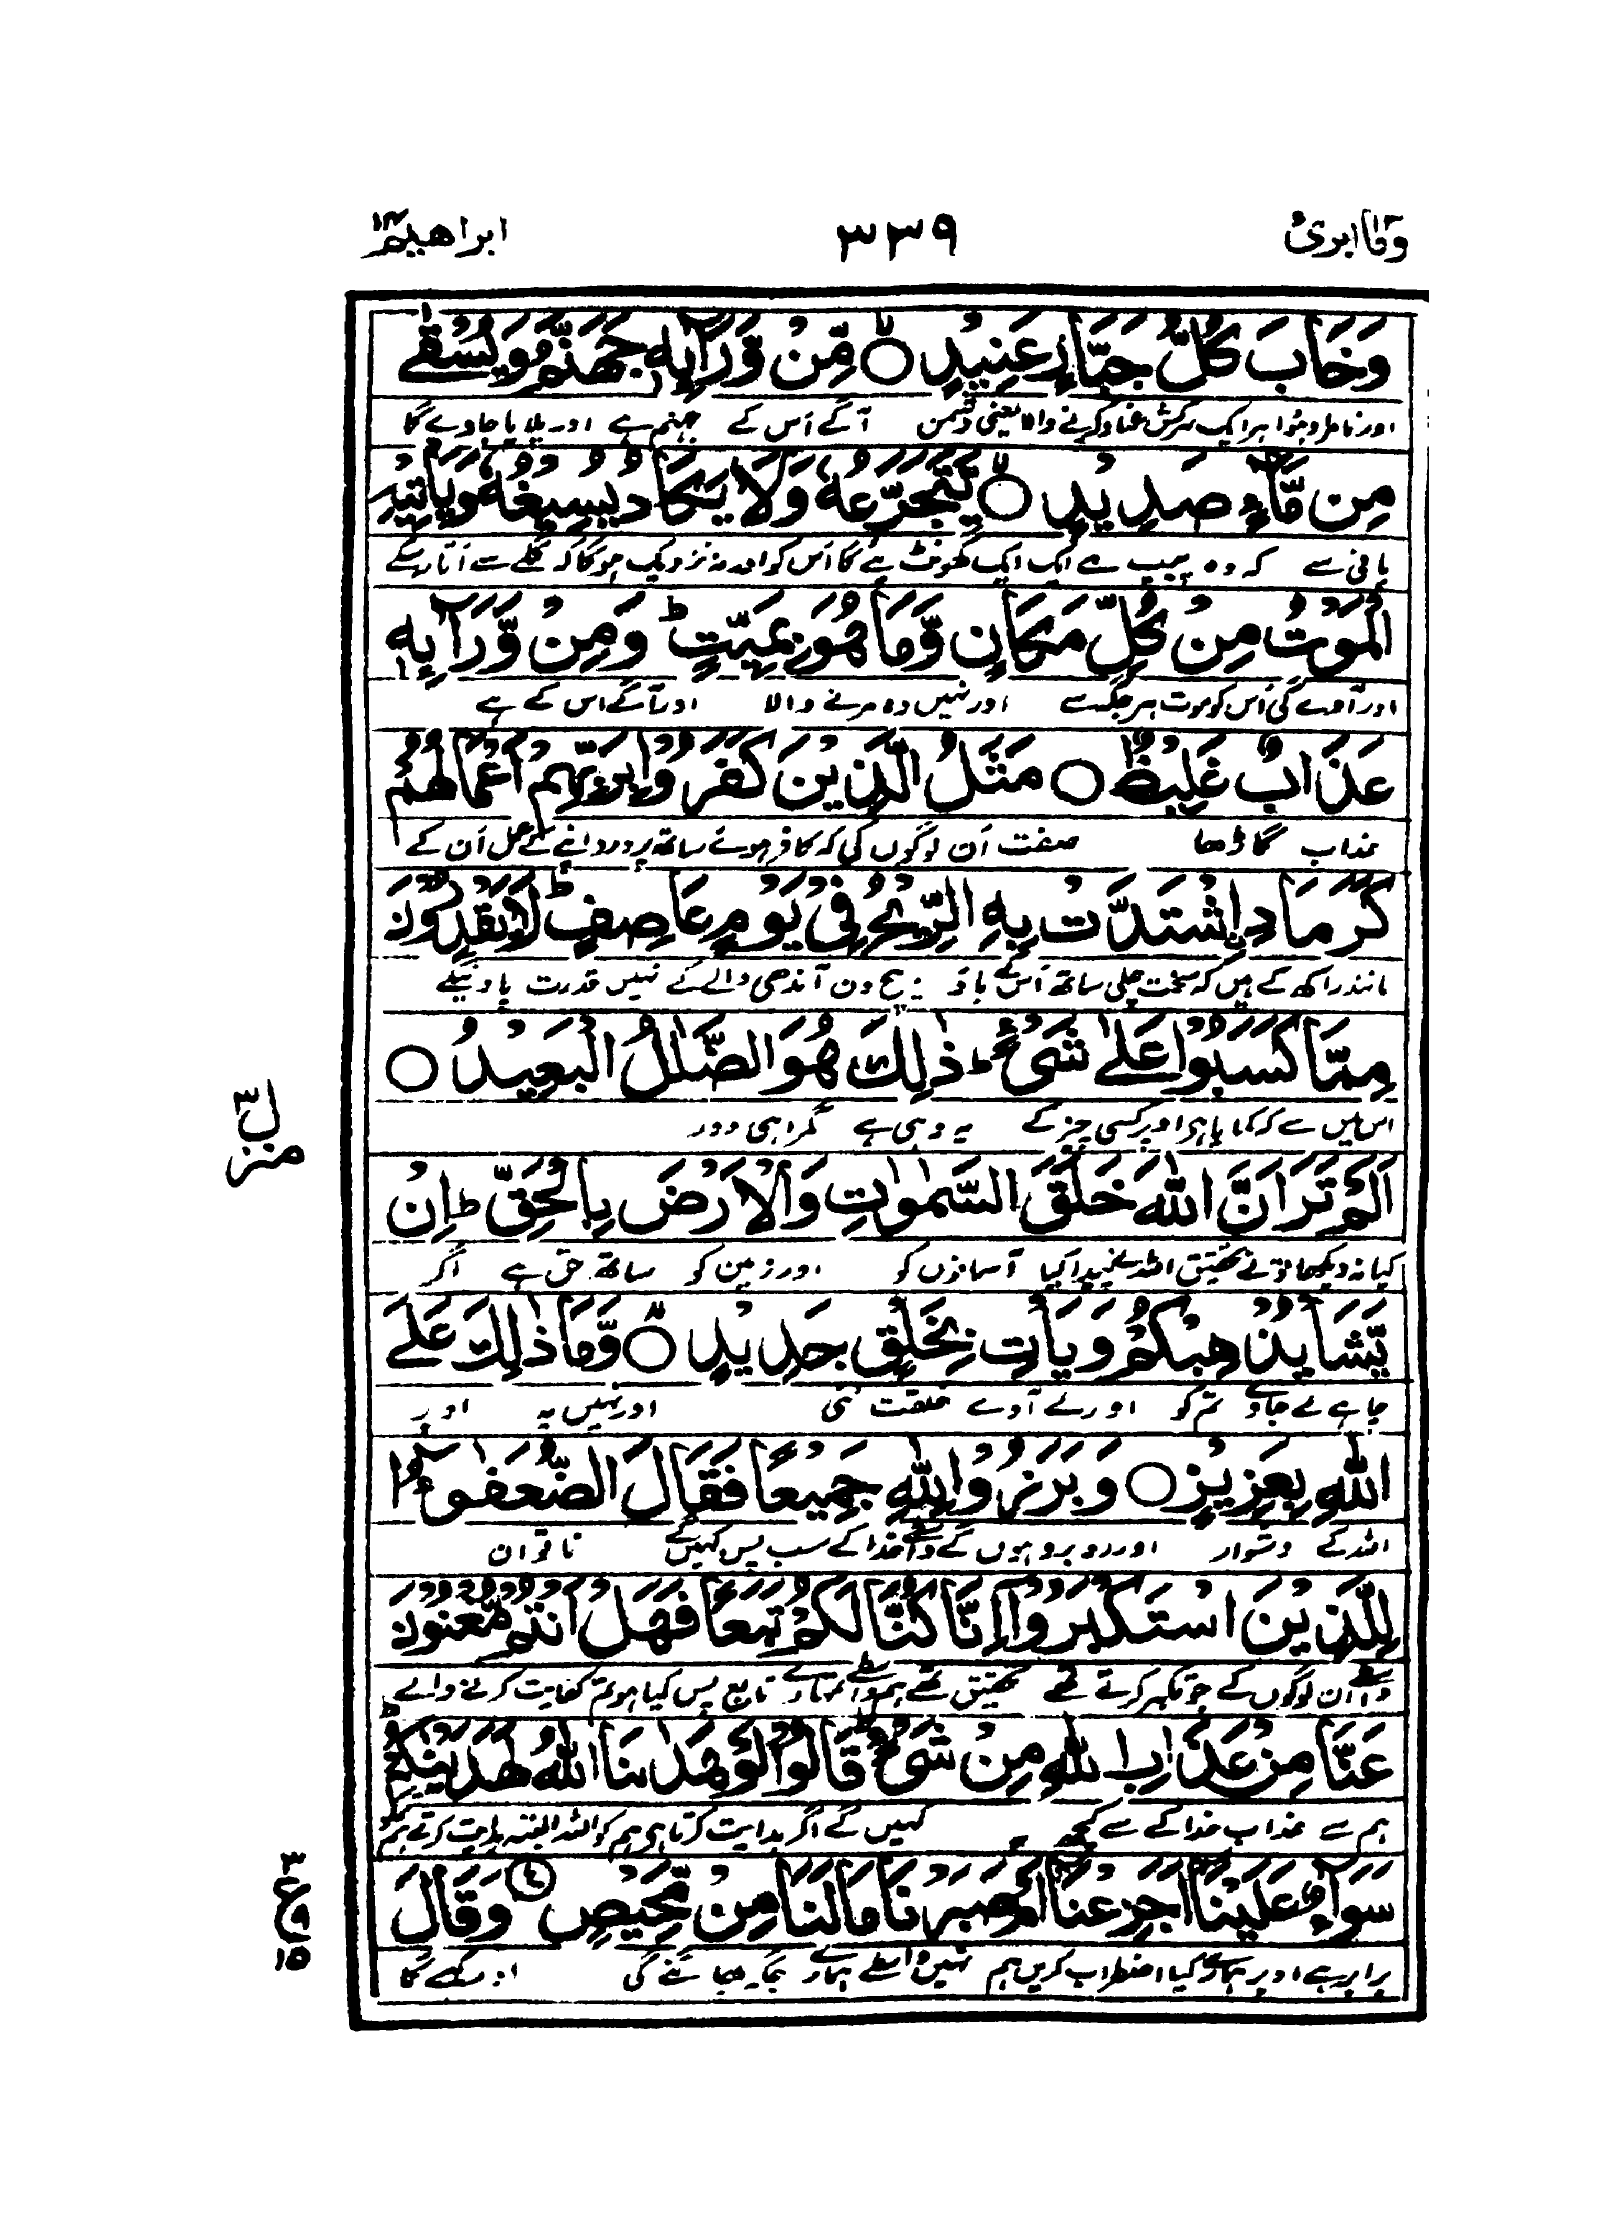 وما ابرئ ١٣
٣٣٩
ابراهيم ١٤
وَخَابَ كُلُّ جَبَّارٍ عَنِيْدٍ ○ مِّنْ وَّرَآىِٕهٖ جَهَنَّمُ وَيُسْقٰى
اور نامراد ہوا ہر ایک سرکش عناد کرنے والا یعنی دشمن آگے اُس کے جہنم ہے اور پلایا جاوے گا
مِنْ مَّآءٍ صَدِيْدٍ ○ يَّتَجَرَّعُهٗ وَلَا يَكَادُ يُسِيْغُهٗ وَيَاْتِيْهِ
پانی سے کہ وہ پیپ ہے ایک ایک گھونٹ پئے گا اُس کو اور نہ نزدیک ہوگا کہ گلے سے اُتارے
الْمَوْتُ مِنْ كُلِّ مَكَانٍ وَّمَا هُوَ بِمَيِّتٍ ؕ وَمِنْ وَّرَآىِٕهٖ
اور آوے گی اُس کو موت ہر جگہ سے اور نہیں وہ مرنے والا اور آگے اس کے ہے
عَذَابٌ غَلِيْظٌ ○ مَثَلُ الَّذِيْنَ كَفَرُوْا بِرَبِّهِمْ اَعْمَالُهُمْ
عذاب گاڑھا صفت اُن لوگوں کی کہ کافر ہوئے ساتھ پروردگار اپنے کے عمل اُن کے
كَرَمَادِ اِۨشْتَدَّتْ بِهِ الرِّيْحُ فِيْ يَوْمٍ عَاصِفٍ ؕ لَا يَقْدِرُوْنَ
مانند راکھ کے ہیں کہ سخت چلی ساتھ اُس کے باؤ بیچ دن آندھی والے کے نہیں قدرت پاویں گے
مِمَّا كَسَبُوْا عَلٰى شَيْءٍ ؕ ذٰلِكَ هُوَ الضَّلٰلُ الْبَعِيْدُ ○
اس میں سے کہ کمایا ہے اوپر کسی چیز کے یہ وہی ہے گمراہی دور
اَلَمْ تَرَ اَنَّ اللّٰهَ خَلَقَ السَّمٰوٰتِ وَالْاَرْضَ بِالْحَقِّ ؕ اِنْ
کیا نہ دیکھا تو نے تحقیق اللہ نے پیدا کیا آسمانوں کو اور زمین کو ساتھ حق کے اگر
يَّشَاْ يُذْهِبْكُمْ وَيَاْتِ بِخَلْقٍ جَدِيْدٍ ○ وَّمَا ذٰلِكَ عَلَى
چاہے لے جاوے تم کو اور لے آوے خلقت نئی اور نہیں یہ اوپر
اللّٰهِ بِعَزِيْزٍ ○ وَبَرَزُوْا لِلّٰهِ جَمِيْعًا فَقَالَ الضُّعَفٰٓؤُا
اللہ کے دشوار اور روبرو ہوں گے واسطے خدا کے سب پس کہیں گے ناتوان
لِلَّذِيْنَ اسْتَكْبَرُوْٓا اِنَّا كُنَّا لَكُمْ تَبَعًا فَهَلْ اَنْتُمْ مُّغْنُوْنَ
واسطے ان لوگوں کے جو تکبر کرتے تھے تحقیق تھے ہم واسطے تمہارے تابع پس کیا ہو تم کفایت کرنے والے
عَنَّا مِنْ عَذَابِ اللّٰهِ مِنْ شَيْءٍ ؕ قَالُوْا لَوْ هَدٰىنَا اللّٰهُ لَهَدَيْنٰكُمْ ؕ
ہم سے عذاب خدا کے سے کچھ کہیں گے اگر ہدایت کرتا ہم کو اللہ البتہ ہدایت کرتے ہم تم کو
سَوَآءٌ عَلَيْنَآ اَجَزِعْنَآ اَمْ صَبَرْنَا مَا لَنَا مِنْ مَّحِيْصٍ وَقَالَ
برابر ہے اوپر ہمارے کیا اضطراب کریں ہم نہیں واسطے ہمارے جگہ بھاگنے کی اور کہے گا
منزل ٣
٣
ع
٩
١٥